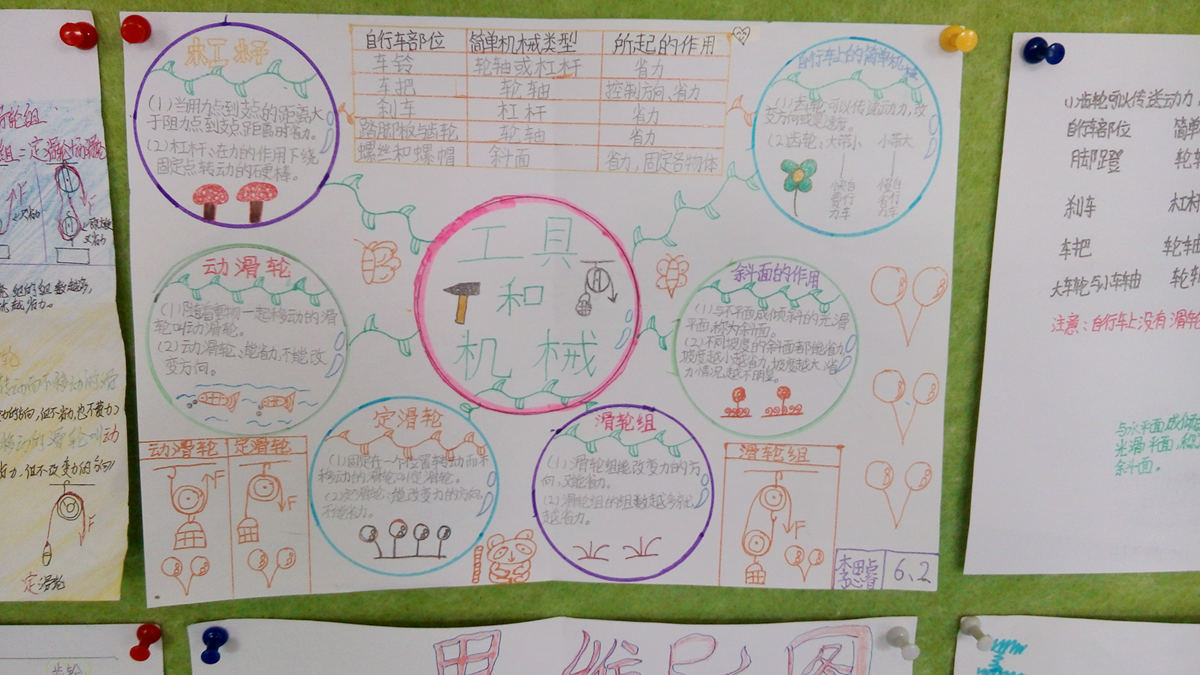 杠杆
(1)当用力点到支点的距离大
于阻力点到支点距离时省力。
(2)杠杆:在力的作用下绕
固定点转动的硬棒。
自行车部位 简单机械类型 所起的作用
车铃 轮轴或杠杆 省力
车把 轮轴 控制方向、省力
刹车 杠杆 省力
踏脚板与齿轮 轮轴 省力
螺丝和螺帽 斜面 省力,固定各物体
自行车上的简单机械
(1)齿轮可以传送动力,改
变方向或变速度。
(2)齿轮:大带小 小带大
工具
和
机械
动滑轮
(1)随着重物一起移动的滑
轮叫动滑轮。
(2)动滑轮:能省力,不能改
变方向。
斜面的作用
(1)与水平面成倾斜的光滑
平面,称为斜面。
(2)不同坡度的斜面都能省力,
坡度越小越省力,坡度越大,省
力情况越不明显。
定滑轮
(1)固定在一个位置转动而不
移动的滑轮叫定滑轮。
(2)定滑轮:能改变力的方向,
不能省力。
滑轮组
(1)滑轮组能改变力的方
向,又能省力。
(2)滑轮组的组数越多,
越省力。
动滑轮 定滑轮
F F
滑轮组
F
6.2
F
定滑轮
小齿轮可以传送动力
自行车部位 简单
脚蹬 轮轴
刹车 杠杆
车把 轮轴
大车轮与小车轴 轮轴
注意:自行车上没有滑轮
与水平面成倾
光滑平面,称
斜面。
思维
图